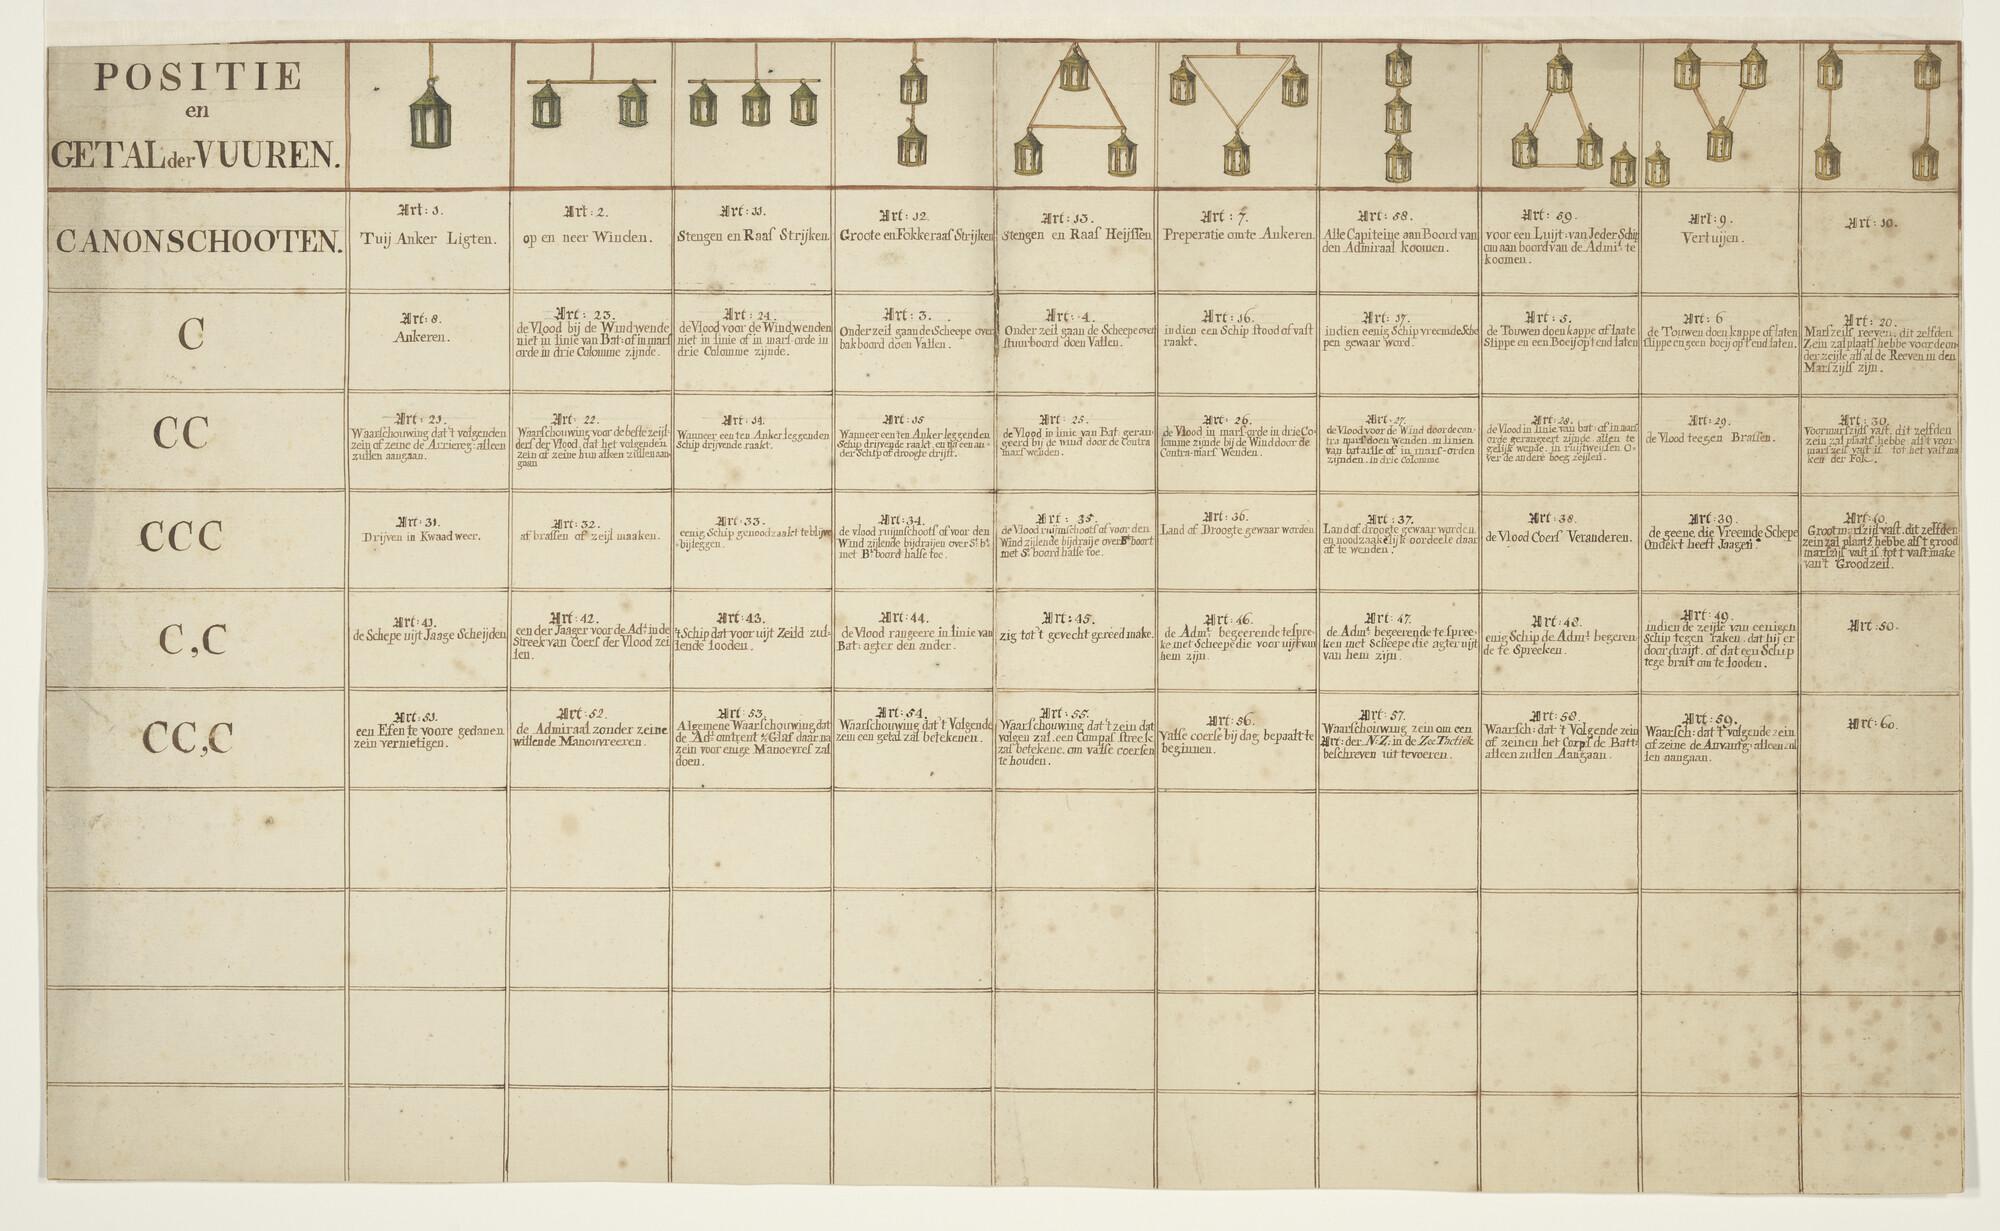 POSITIE
en
GETAL der VUUREN.
CANONSCHOOTEN.
Art: 1.
Tuij Anker Ligten.
Art: 2.
op en neer Winden.
Art: 11.
Stengen en Raas Strijken
Art: 12.
Groote en Fokkeraas Strijken
Art: 13.
Stengen en Raas Heijssen
Art: 7.
Preperatie omte Ankeren.
Art: 58.
Alle Capiteine aan Boord van
den Admiraal koomen.
Art: 59.
voor een Luijt: van Jeder Schip
om aan boord van de Admi.l te
koomen.
Art: 9.
Vertuijen.
Art: 10.
C
Art: 8.
Ankeren.
Art: 23.
de Vlood bij de Wind wende
niet in linie van Bat: of in mars
orde in drie Colomme zijnde.
Art: 24.
de Vlood voor de Wind wenden
niet in linie of in mars-orde in
drie Colomme zijnde.
Art: 3.
Onder zeil gaan de Scheepe over
bakboard doen Vallen.
Art: 4.
Onder zeil gaan de Scheepe over
stuurboard doen Vallen.
Art: 16.
indien een Schip stood of vast
raakt.
Art: 17.
indien eenig Schip vreemde Sche
pen gewaar word.
Art: 5.
de Touwen doen kappe of laate
Slippe en een Boeij op't end laten
Art: 6
de Touwen doen kappe of laten
slippe en geen boeij op't end laten.
Art: 20.
Marszeils reeven, dit zelfden
Zein zal plaats hebbe voor de on-
der zeijle als al de Reeven in den
Marszijls zijn.
CC
Art: 21.
Waarschouwing dat 't volgenden
zein of zeine de Arriereg: alleen
zullen aangaan.
Art: 22.
Waarschouwing voor de beste zeijl-
ders der Vlood, dat het volgenden
zein of zeine hun alleen zullen aan-
gaan
Art: 14.
Wanneer een ten Anker leggenden
Schip drijvende raakt.
Art: 15
Wanneer een ten Anker leggenden
Schip drijvende raakt, en na een an-
der Schip of droogte drijft.
Art: 25.
de Vlood in linie van Bat: geran-
geerd bij de wind door de Contra
mars wenden.
Art: 26.
de Vlood in mars-orde in drie Co-
lomme zijnde bij de Wind door de
Contra-mars Wenden.
Art: 27.
de Vlood voor de Wind door de con-
tra mars doen Wenden. in linien
van bataille of in mars-orden
zijnden. in drie Colomme
Art: 28.
de Vlood in linie van bat: of in mars
orde gerangeert zijnde. allen te
gelijk wende. in ruijtweijsen O-
ver de andere boeg zeijlen.
Art: 29.
de Vlood teegen Brassen.
Art: 30.
Voormarszijls vast, dit zelfden
zein zal plaats hebbe als 't voor-
marszeil vast is tot het vast ma
ken der Fok.
CCC
Art: 31.
Drijven in Kwaad weer.
Art: 32.
af brassen of zeijl maaken.
Art: 33.
eenig Schip genoodzaakt te blijve
bijleggen.
Art: 34.
de vlood ruijmschoots of voor den
Wind zijlende bijdraijen over St: b.t
met B.t boord halse toe.
Art: 35.
de Vlood ruijmschoots of voor den
Wind zijlende bijdraije over B.t boort
met St: boord halse toe.
Art: 36.
Land of Droogte gewaar worden
Art: 37.
Land of droogte gewaar worden
en noodzaakelijk oordeele daar
af te wenden.
Art: 38.
de Vlood Coers Veranderen.
Art: 39.
de geene, die Vreemde Schepe
Ondekt heeft Jaagen.
Art: 40.
Grootmarszijl vast. dit zelfden
zein zal plaatz hebbe als 't grood
marszijl vast is tot 't vastmake
van 't Groodzeil.
C,C
Art: 41.
de Schepe uijt Jaage Scheijden
Art: 42.
een der Jaager voor de Ad.l in de
Streek van Coers der Vlood zei
len.
Art: 43.
't Schip dat voor uijt Zeild zul-
lende looden.
Art: 44.
de Vlood rangeere in linie van
Bat: agter den ander.
Art: 45.
zig tot 't gevecht gereed make.
Art: 46.
de Adm.l begeerende te spre-
ke met Scheepe die voor uijt van
hem zijn.
Art: 47.
de Adm.l begeerende te spree-
ken met Scheepe die agter uijt
van hem zijn.
Art: 48.
enig Schip de Adm.l begeren-
de te Spreeken.
Art: 49.
indien de zeijle van eenigen
Schip tegen raken. dat hij er
door draijt. of dat een Schip
tege brast om te looden.
Art: 50.
CC,C
Art: 51.
een Efen te voore gedanen
zein vernietigen.
Art: 52.
de Admiraal zonder zeine
willende Manouvreeren.
Art: 53.
Algemene Waarschouwing dat
de Ad.l omtrent ½ Glas daar na
zein voor enige Manoevres zal
doen.
Art: 54.
Waarschouwing dat 't Volgende
zein een getal zal betekenen.
Art: 55.
Waarschouwing dat 't zein dat
volgen zal. een Compas streek
zal betekene. om valse coersen
te houden.
Art: 56.
Valse coerse bij dag bepaalt te
beginnen.
Art: 57.
Waarschouwing zein om een
Art: der N:Z: in de Zee Tactiek
beschreven uit te voeren.
Art: 58.
Waarsch: dat 't Volgende zein
of zeinen het Corps de Batt:
alleen zullen Aangaan.
Art: 59.
Waarsch: dat 't volgende zein
of zeine de Anvantg: alleen zul
len aangaan.
Art: 60.